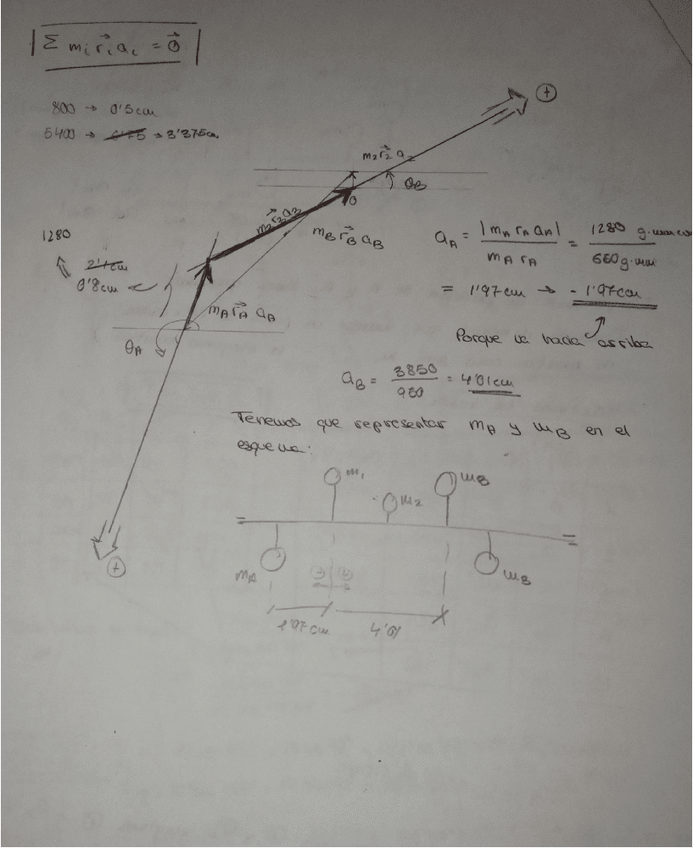 Σ mᵢ r⃗ᵢ aᵢ = 0⃗
800 → 0'5cm
5400 → 3'375cm
⊕
m₂ r⃗₂ a₂
θB
mB r⃗B aB
1280
2'1cm
0'8cm
mA r⃗A aA
θA
aA = |mA rA aA| / mA rA = 1280 g·mm·cm / 650 g·mm
= 1'97cm → - 1'97cm
Porque va hacia arriba
aB = 3850 / 960 = 4'01cm
Tenemos que representar mA y mB en el
esquema:
m₁
m₂
m₃
mA
mB
⊕
1'97cm
4'01